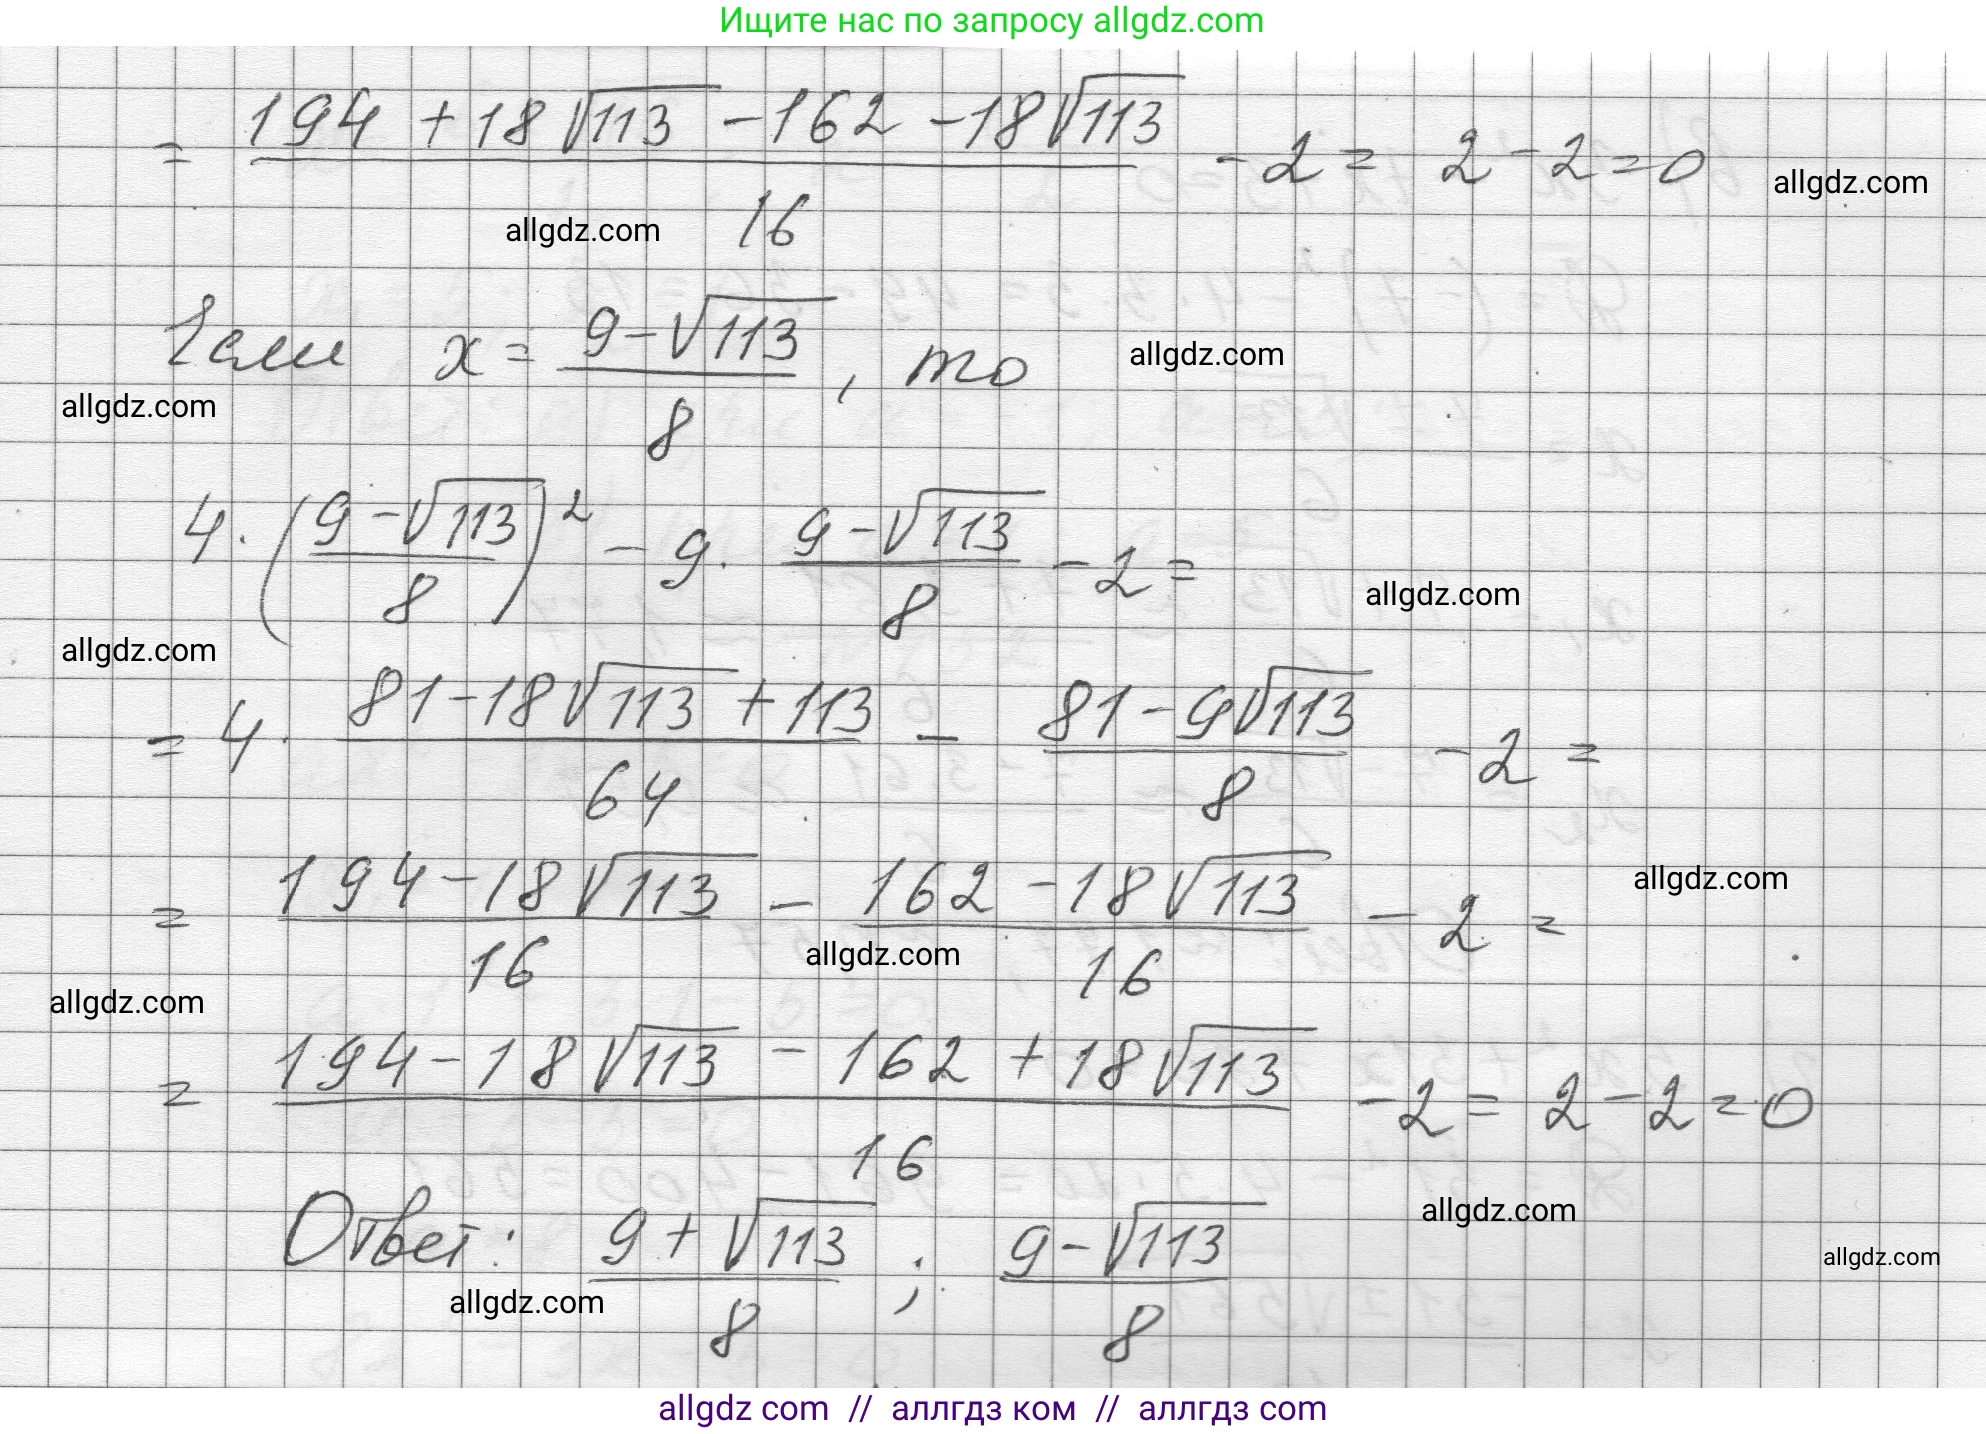 Ищите нас по запросу allgdz.com
= (194 + 18√113 − 162 − 18√113)/16 − 2 = 2 − 2 = 0
allgdz.com
allgdz.com
Если x = (9 − √113)/8, то
allgdz.com
allgdz.com
4 · ((9 − √113)/8)² − 9 · (9 − √113)/8 − 2 =
allgdz.com
allgdz.com
= 4 · (81 − 18√113 + 113)/64 − (81 − 9√113)/8 − 2 =
= (194 − 18√113)/16 − (162 − 18√113)/16 − 2 =
allgdz.com
allgdz.com
allgdz.com
= (194 − 18√113 − 162 + 18√113)/16 − 2 = 2 − 2 = 0
allgdz.com
Ответ: (9 + √113)/8 ; (9 − √113)/8
allgdz.com
allgdz.com
allgdz com // аллгдз ком // аллгдз com